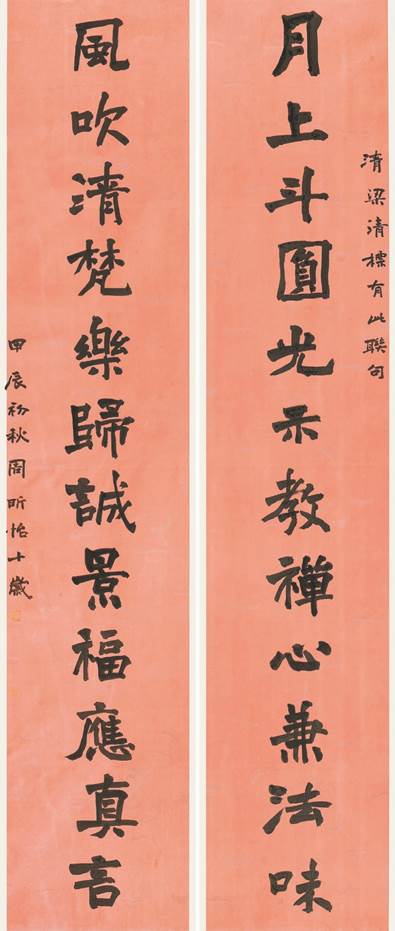 清梁清標有此聯句
月上斗圓光示教禪心兼法味
風吹清梵樂歸誠景福應真言
甲辰初秋周昕怡十歲